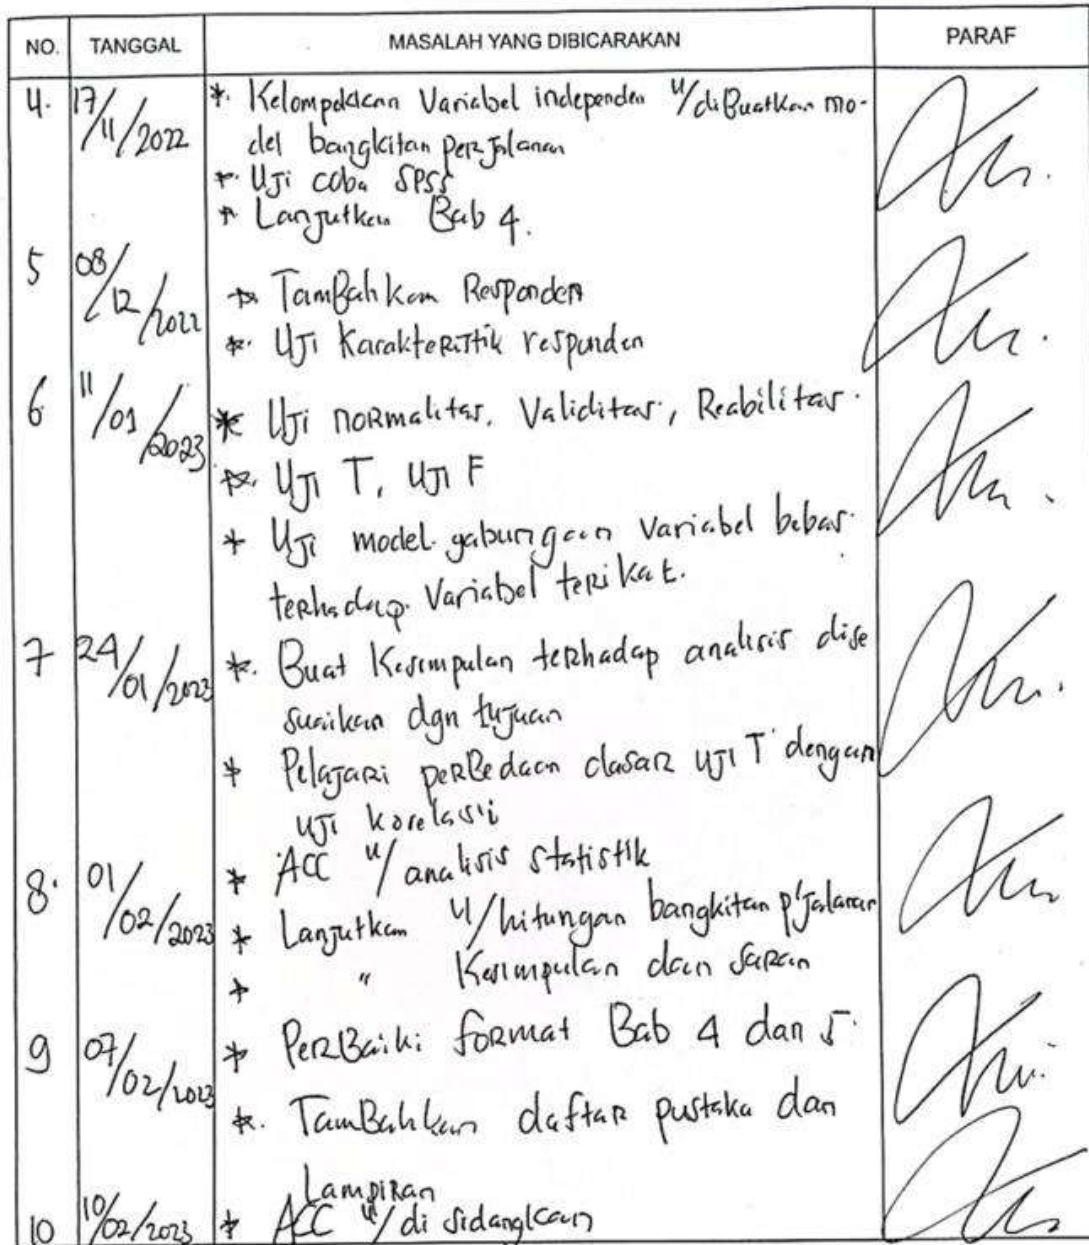 NO. TANGGAL MASALAH YANG DIBICARAKAN PARAF
4. 17/11/2022 * Kelompokkan Variabel independen u/ dibuatkan mo-
del bangkitan perjalanan
* Uji coba SPSS
* Lanjutkan Bab 4.
5 08/12/2022 * Tambahkan Responden
* Uji Karakteristik responden
6 11/01/2023 * Uji normalitas, Validitas, Reabilitas.
* Uji T, Uji F
* Uji model gabungaan Variabel bebas
terhadap Variabel terikat.
7 24/01/2023 * Buat Kesimpulan terhadap analisis dise
suaikan dgn tujuan
* Pelajari perbedaan dasar uji T dengan
uji korelasi
8. 01/02/2023 * ACC u/ analisis statistik
* Lanjutkan u/ hitungan bangkitan p'jalanan
* " Kesimpulan dan saran
9 07/02/2023 * Perbaiki format Bab 4 dan 5.
* Tambahkan daftar pustaka dan
Lampiran
10 10/02/2023 * ACC u/ di sidangkan